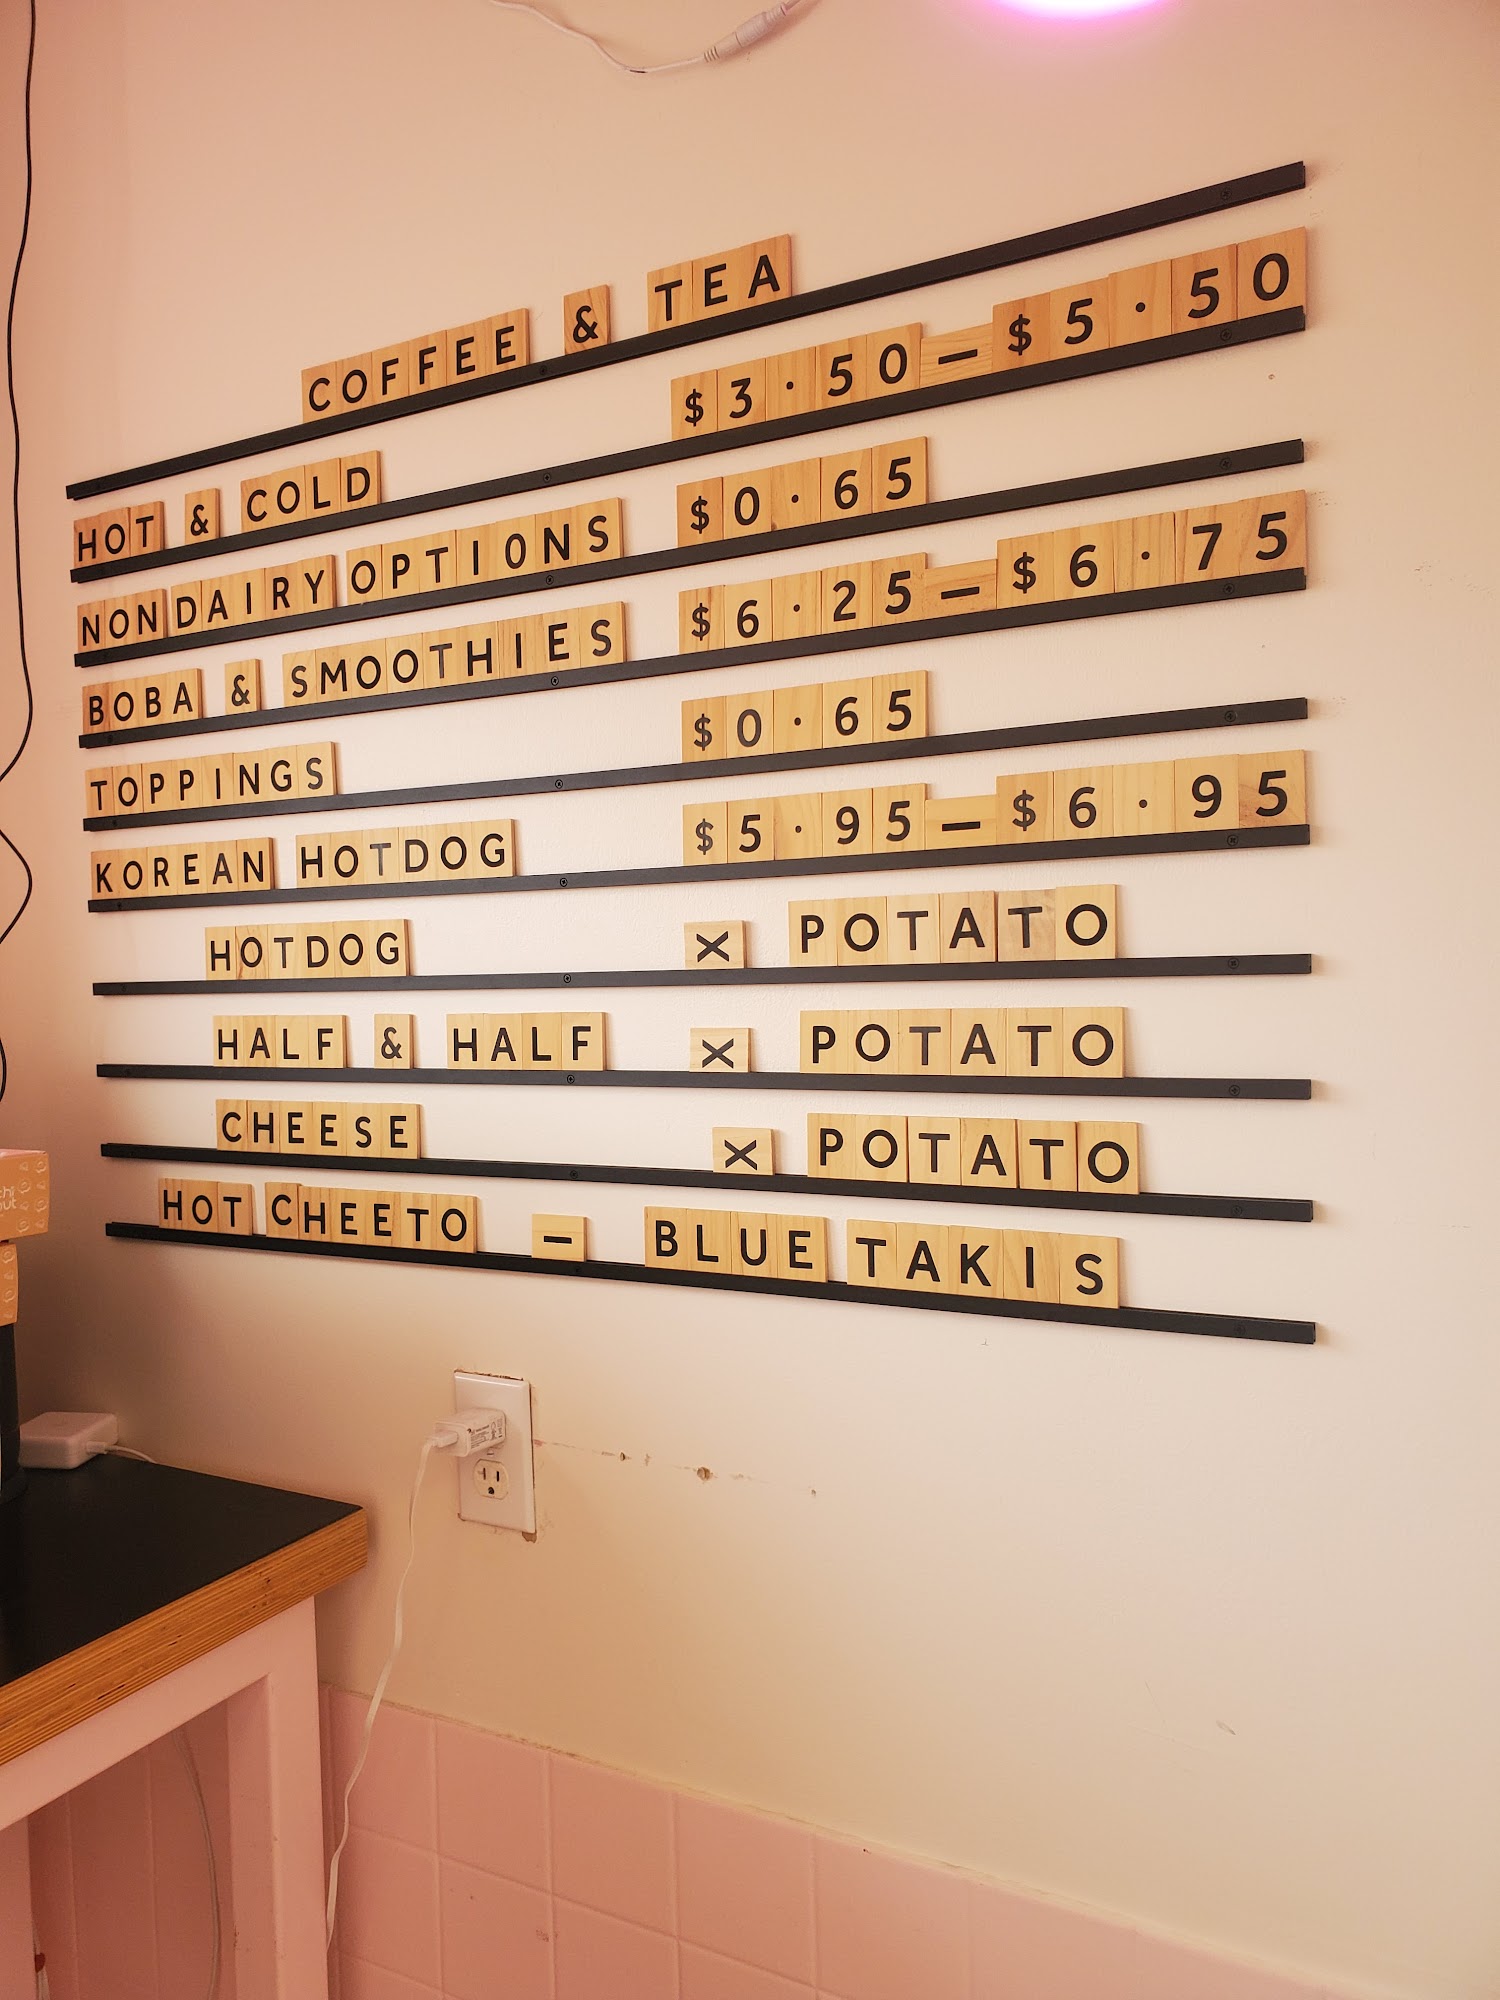 COFFEE & TEA
HOT & COLD $3.50-$5.50
NONDAIRY OPTIONS $0.65
BOBA & SMOOTHIES $6.25-$6.75
TOPPINGS $0.65
KOREAN HOTDOG $5.95-$6.95
HOTDOG X POTATO
HALF & HALF X POTATO
CHEESE X POTATO
HOT CHEETO - BLUE TAKIS